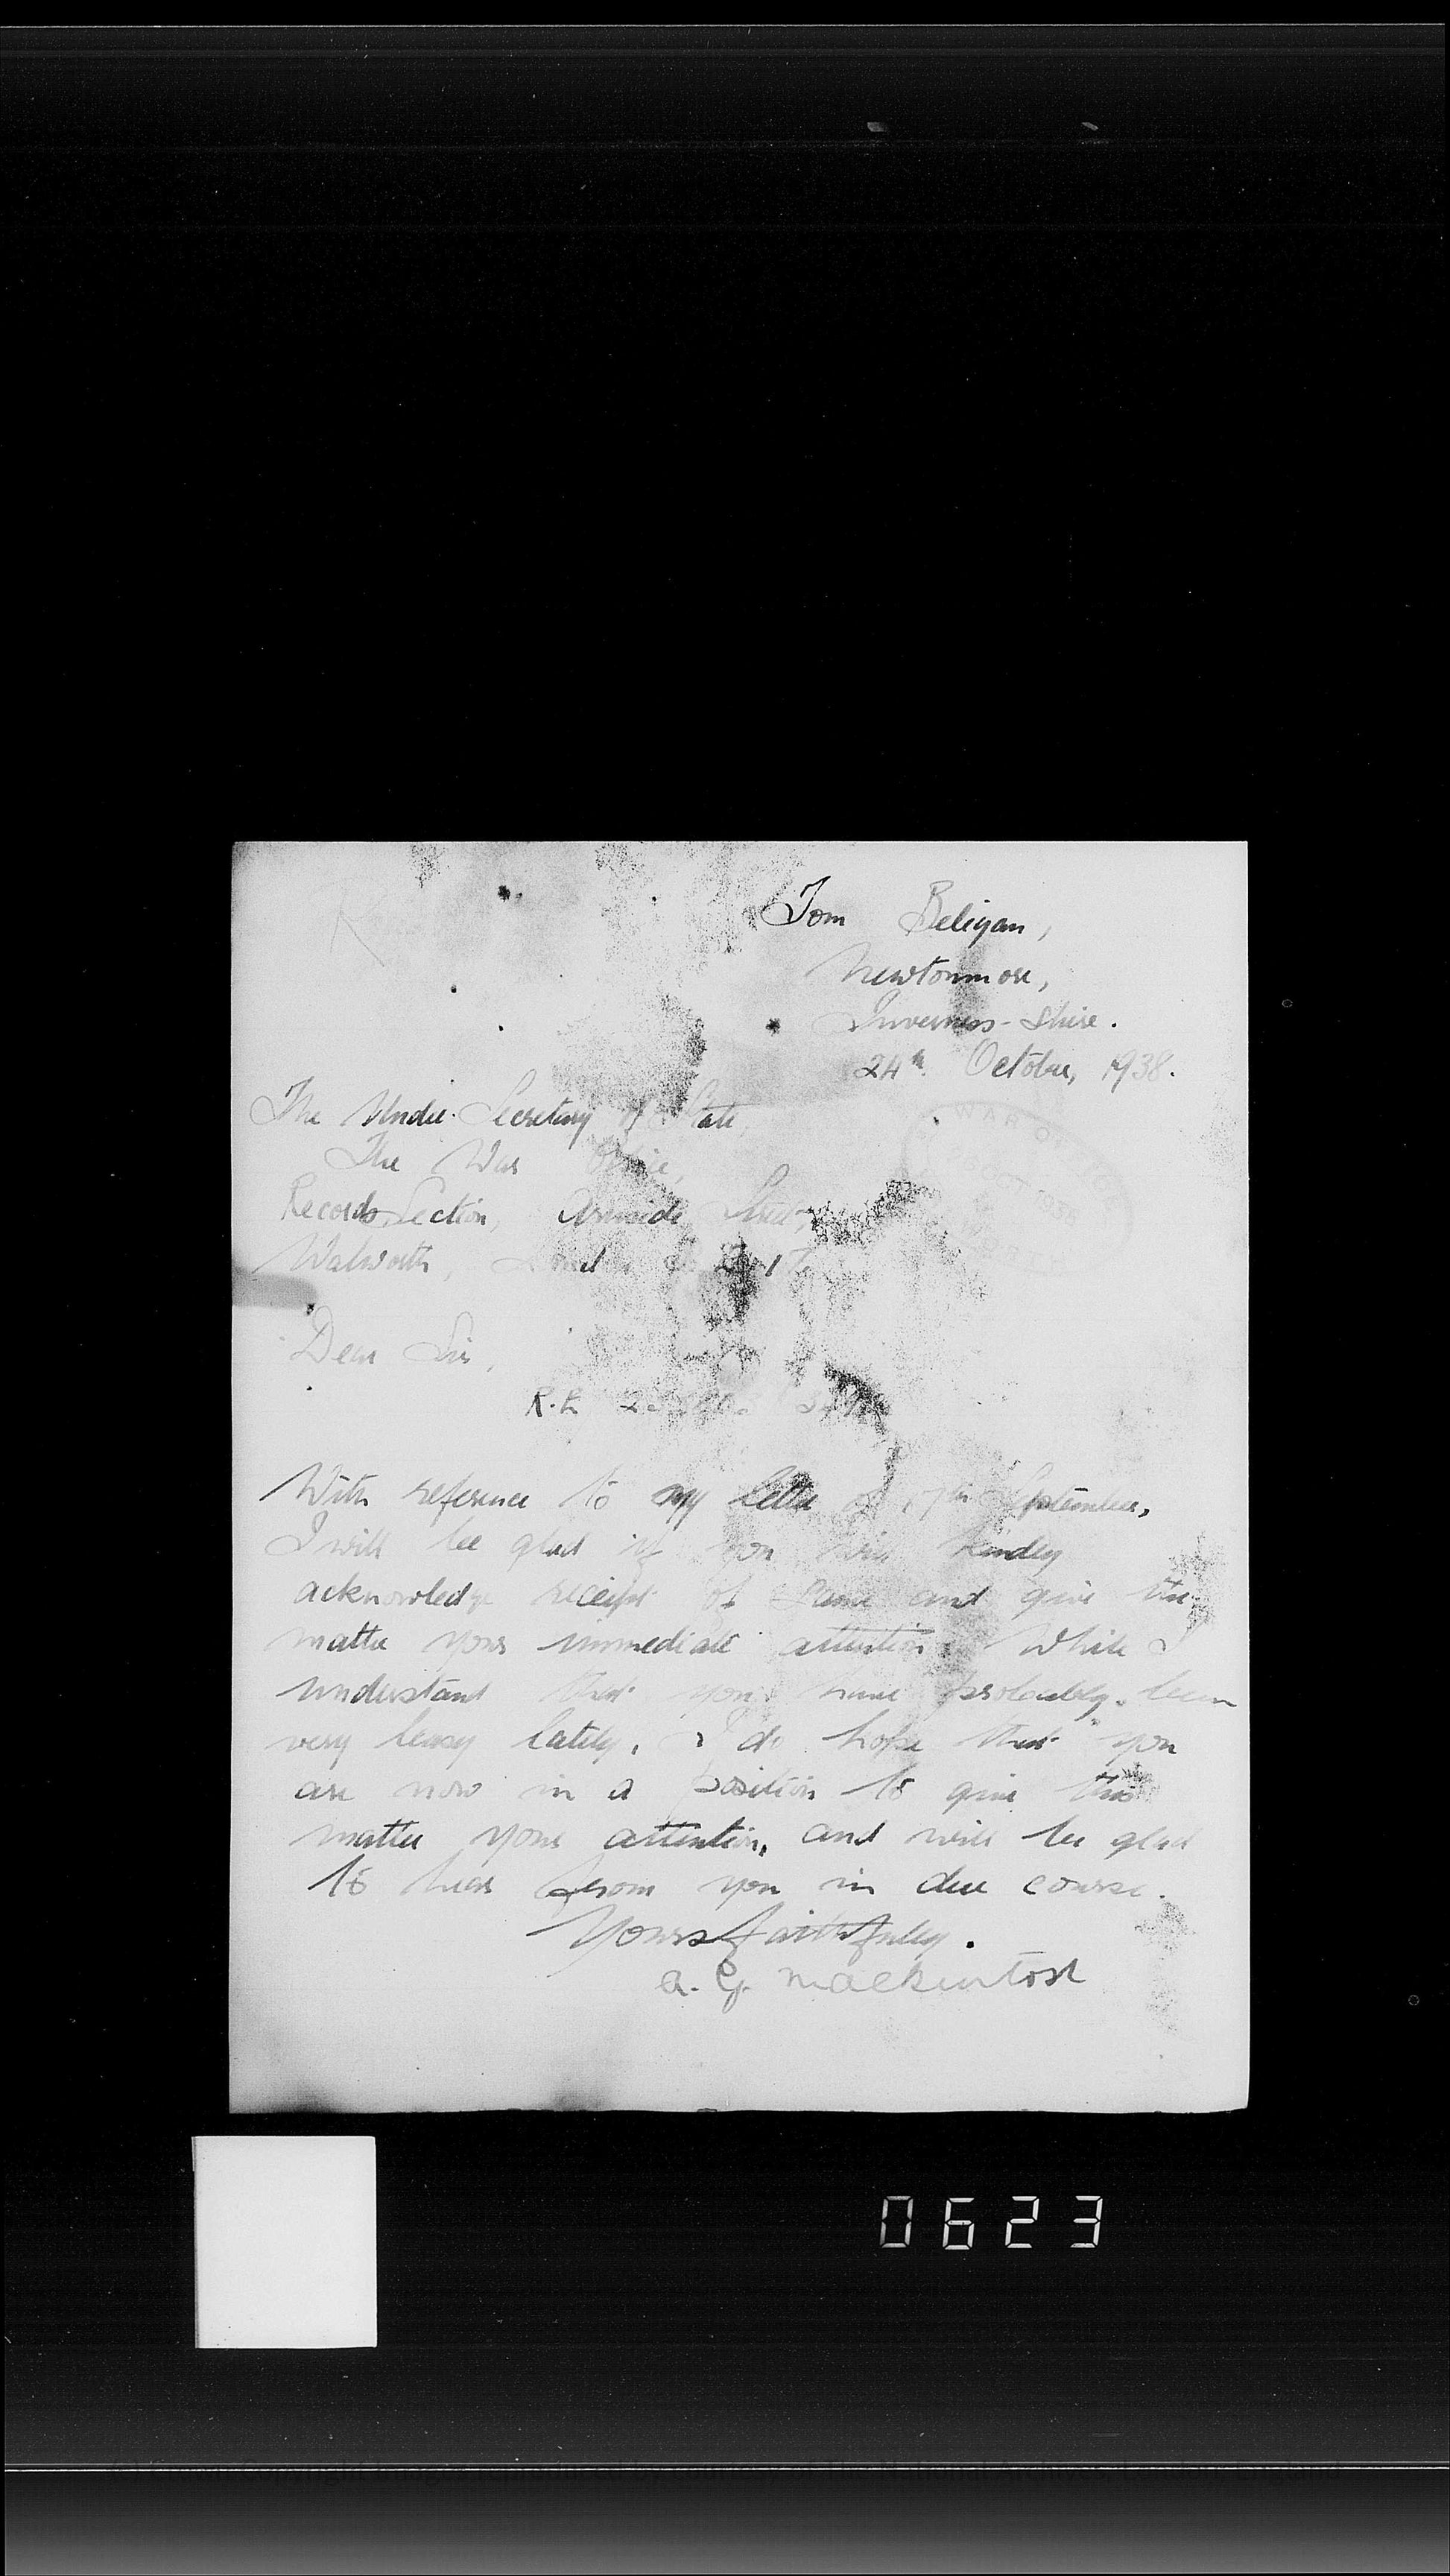 Tom Beligan,
Newtonmore,
Inverness-Shire.
24th October, 1938.
The Under Secretary of State,
The War Office,
Records Section, Arnside Street,
Walworth, London S.E. 17.
Dear Sir,
With reference to my letter of 7th September,
I will be glad if you will kindly
acknowledge receipt of same and give the
matter your immediate attention. While I
understand that you have probably been
very busy lately, I do hope that you
are now in a position to give this
matter your attention, and will be glad
to hear from you in due course.
Yours faithfully.
A. G. Mackintosh
0623